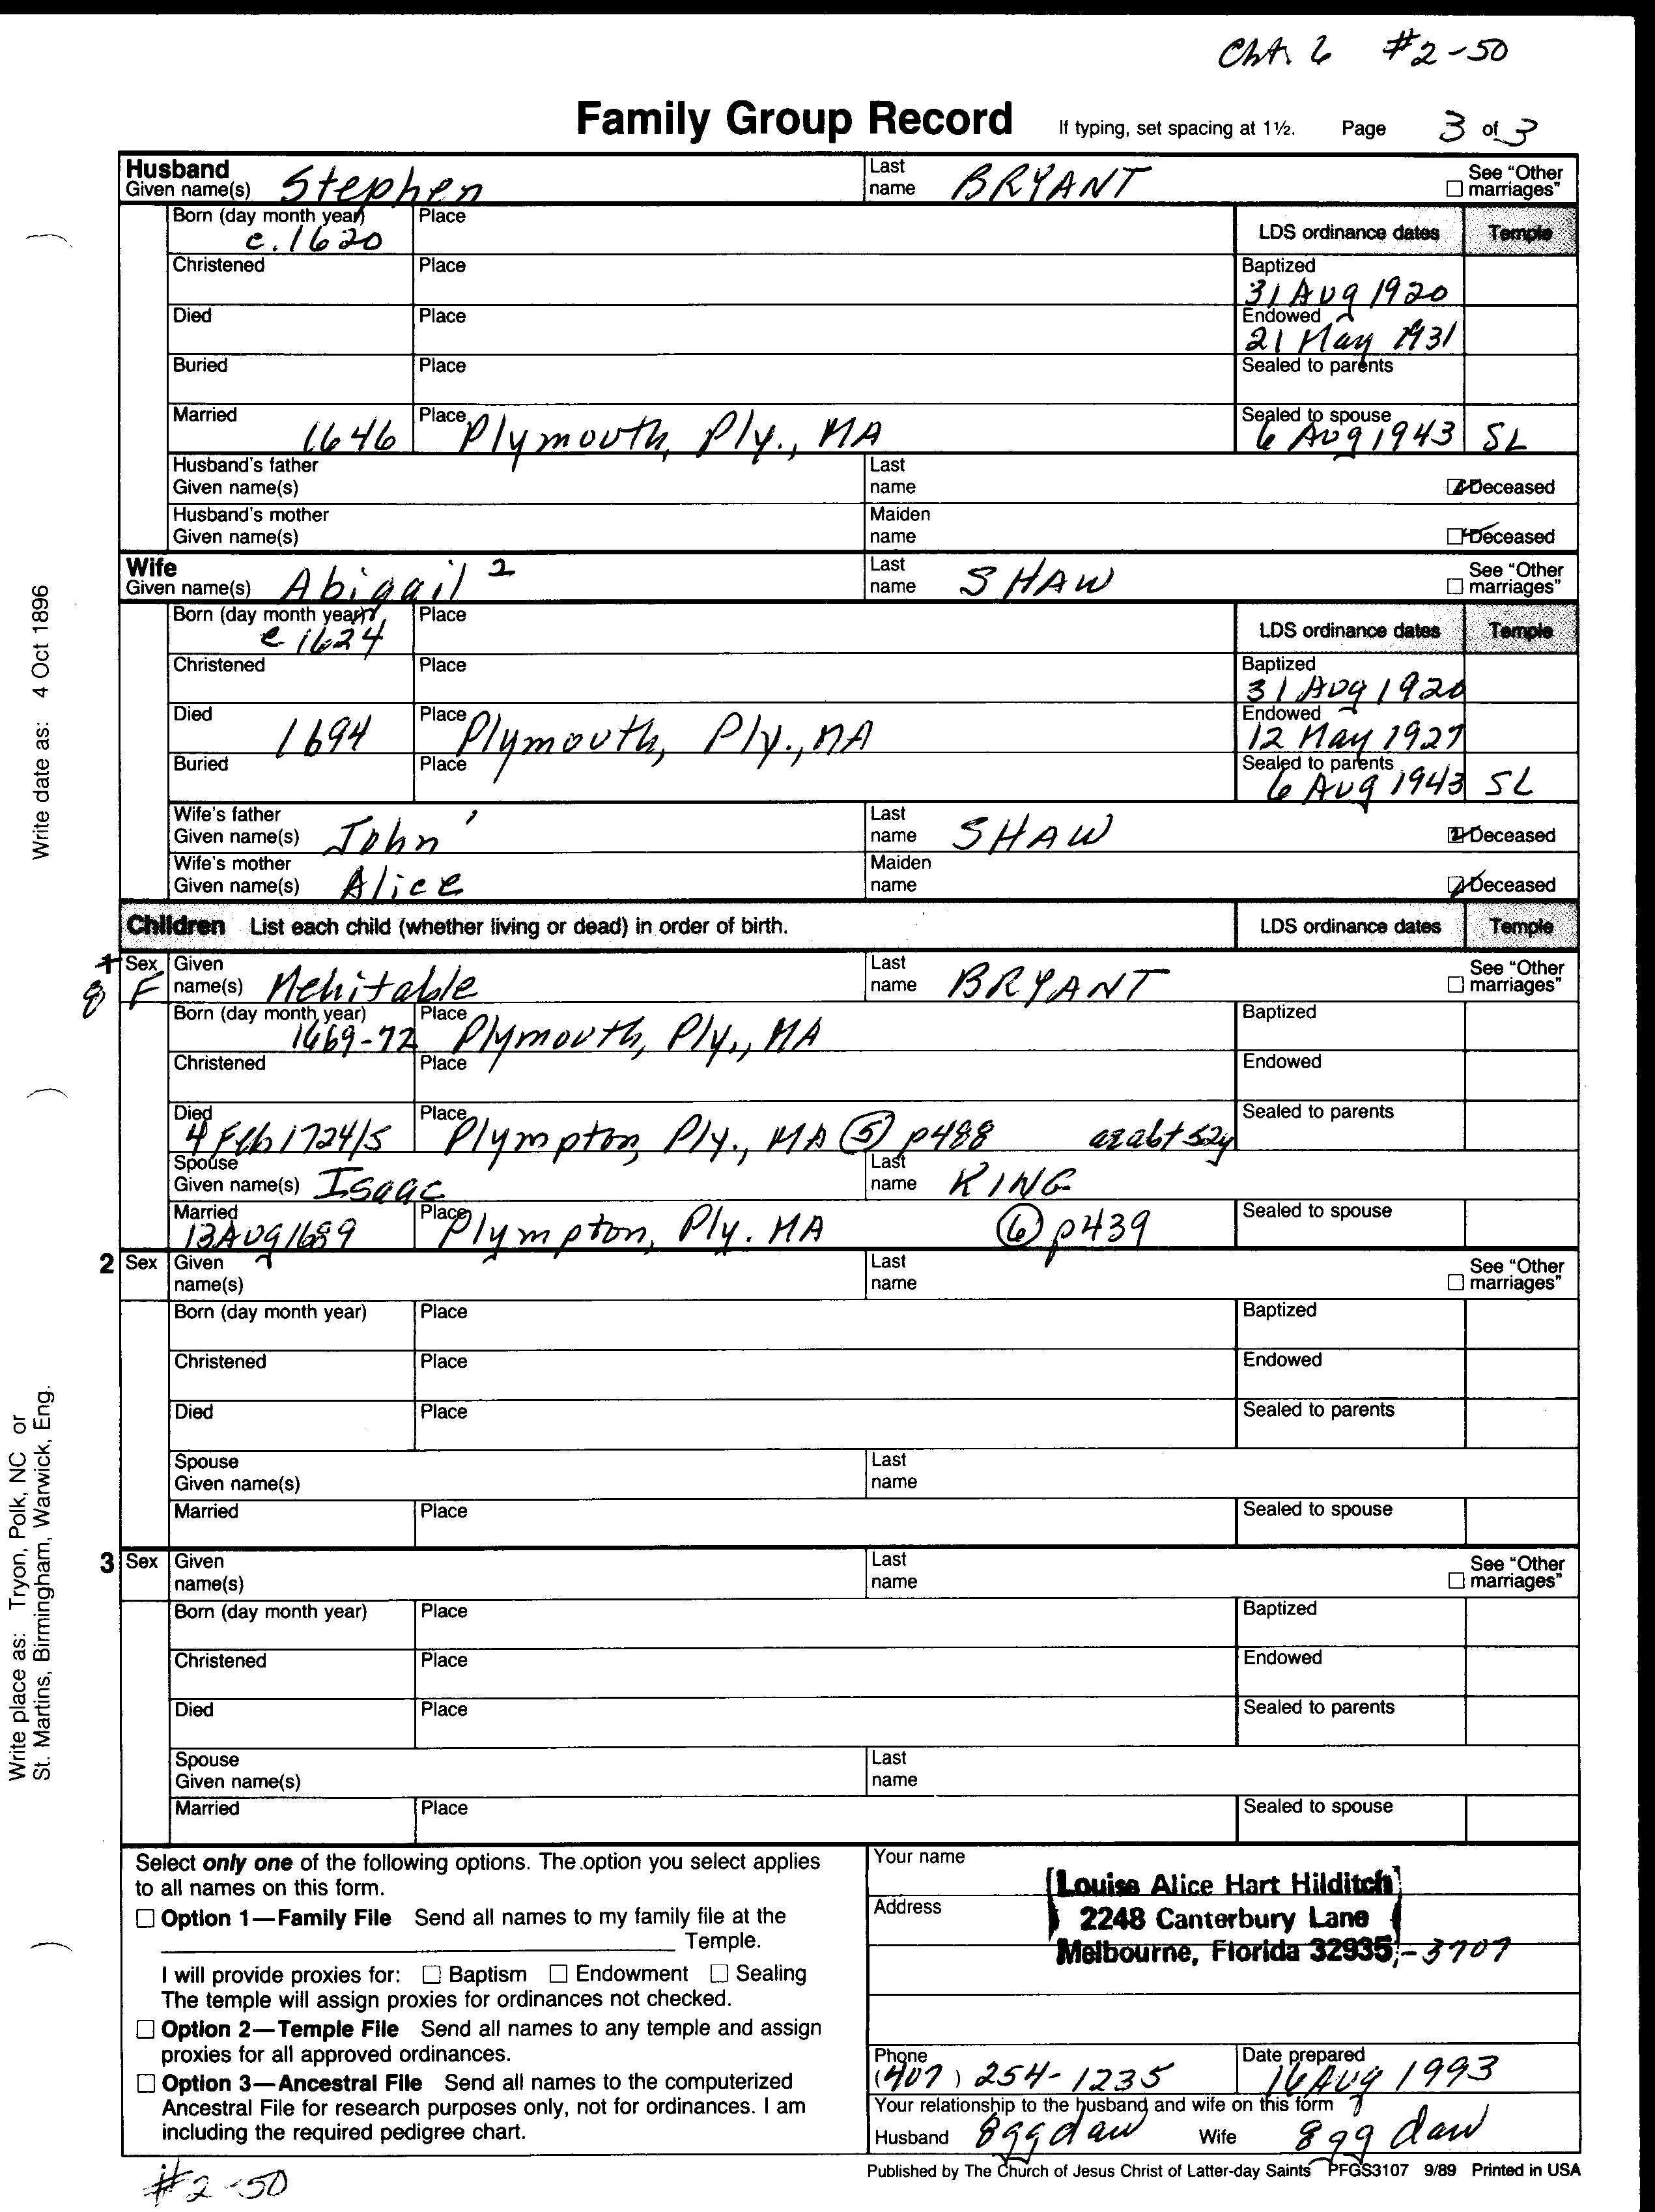 Cht. 6 #2-50
Family Group Record If typing, set spacing at 1½. Page 3 of 3
Husband
Given name(s) Stephen Last name BRYANT See "Other marriages"
Born (day month year) c. 1620 Place LDS ordinance dates Temple
Christened Place Baptized 31 Aug 1920
Died Place Endowed 21 May 1931
Buried Place Sealed to parents
Married 1646 Place Plymouth, Ply., MA Sealed to spouse 6 Aug 1943 SL
Husband's father Given name(s) Last name Deceased
Husband's mother Given name(s) Maiden name Deceased
Wife
Given name(s) Abigail 2 Last name SHAW See "Other marriages"
Born (day month year) c 1624 Place LDS ordinance dates Temple
Christened Place Baptized 31 Aug 1920
Died 1694 Place Plymouth, Ply., MA Endowed 12 May 1927
Buried Place Sealed to parents 6 Aug 1943 SL
Wife's father Given name(s) John ' Last name SHAW Deceased
Wife's mother Given name(s) Alice Maiden name Deceased
Children List each child (whether living or dead) in order of birth. LDS ordinance dates Temple
1 8 Sex F Given name(s) Mehitable Last name BRYANT See "Other marriages"
Born (day month year) 1669-72 Place Plymouth, Ply., MA Baptized
Christened Place Endowed
Died 4 Feb 1724/5 Place Plympton, Ply., MA (5) p488 aeabt 52y Sealed to parents
Spouse Given name(s) Isaac Last name KING
Married 13 Aug 1689 Place Plympton, Ply. MA (6) p439 Sealed to spouse
2 Sex Given name(s) Last name See "Other marriages"
Born (day month year) Place Baptized
Christened Place Endowed
Died Place Sealed to parents
Spouse Given name(s) Last name
Married Place Sealed to spouse
3 Sex Given name(s) Last name See "Other marriages"
Born (day month year) Place Baptized
Christened Place Endowed
Died Place Sealed to parents
Spouse Given name(s) Last name
Married Place Sealed to spouse
Select only one of the following options. The option you select applies
to all names on this form.
Option 1—Family File Send all names to my family file at the
Temple.
I will provide proxies for: Baptism Endowment Sealing
The temple will assign proxies for ordinances not checked.
Option 2—Temple File Send all names to any temple and assign
proxies for all approved ordinances.
Option 3—Ancestral File Send all names to the computerized
Ancestral File for research purposes only, not for ordinances. I am
including the required pedigree chart.
Your name Louise Alice Hart Hilditch
Address 2248 Canterbury Lane
Melbourne, Florida 32935-3707
Phone (407) 254-1235 Date prepared 16 Aug 1993
Your relationship to the husband and wife on this form
Husband 8ggdau Wife 8gg dau
Published by The Church of Jesus Christ of Latter-day Saints PFGS3107 9/89 Printed in USA
#2-50
Write date as: 4 Oct 1896
Write place as: Tryon, Polk, NC or
St. Martins, Birmingham, Warwick, Eng.